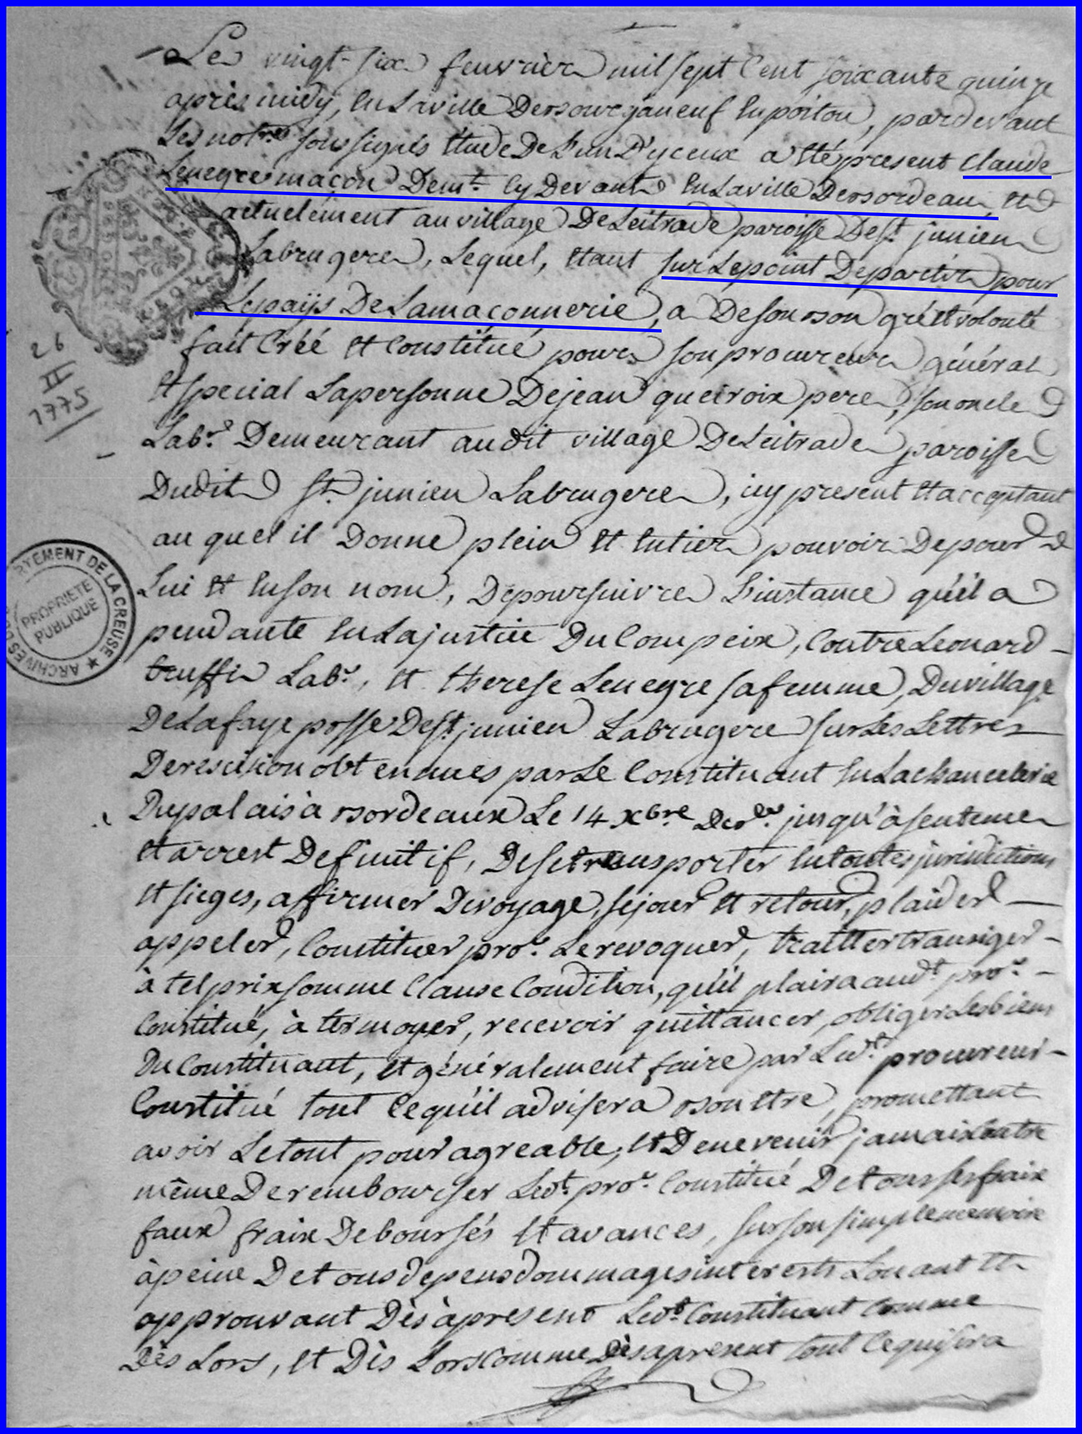 Le vingt-six feuvrier mil sept Cent soixante quinze
apres midy, En La ville De Bourganeuf En poitou, par devant
Les not.res soussignés Etude De L'un D'yceux a Eté present Claude
Lenegre maçon Dem.t Cy Devant En La ville De Bordeau, Et
actuelement au village De Leitrade paroisse De St. junien
Labrugere, Lequel, Etant sur Le point De partir pour
Le païs De La maçonnerie, a De son bon gré Et volonté
fait Créé Et Constitué pour son procureur général
Et special La personne De jean queiroix pere, son oncle
Lab.r Demeurant audit village De Leitrade paroisse
Dudit St. junien Labrugere, icy present Et acceptant
au quel il Donne plein Et Entier pouvoir De pour
Lui Et En son nom, De poursuivre L'instance qu'il a
pendante En La justice Du Compeix, Contre Leonard
truffi Lab.r, Et therese Lenegre sa femme, Du village
De La faye posse De St. junien Labrugere sur Les Lettres
De rescision obtenues par Le Constituant En La chancelerie
Du palais à Bordeaux Le 14 Xbre Der.er jusqu'à sentence
Et arrest Definitif, De se transporter En toutes jurisdictions
Et sieges, affirmer De voyage, séjour Et retour, plaider
appeler, Constituer pro.r Le revoquer, traitter transiger
à tel prix somme Clause Condition, qu'il plaira aud.t pro.r
Constitué, à termoyer, recevoir quittancer, obliger Les biens
Du Constituant, Et généralement faire par Led.t procureur
Constitué tout Ce qu'il advisera bon Etre, promettant
avoir Le tout pour agreable, Et De ne venir jamais Contre
même De rembourser Led.t pro.r Constitué De tous ses fraix
faux fraix Deboursés Et avances, sur son simple memoire
à peine De tous depens dommages interests Louant Et
approuvant Dès à present Led.t Constituant Comme
Dès Lors, Et Dès Lors Comme Dès a present tout Ce qui sera
26
II
1775
ARCHIVES DU DEPARTEMENT DE LA CREUSE
PROPRIETE
PUBLIQUE